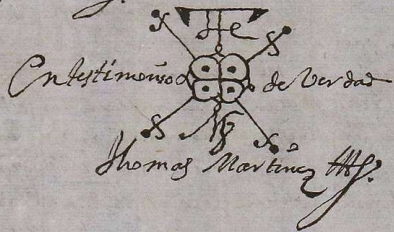 En testimonio de Verdad
Thomas Martinez